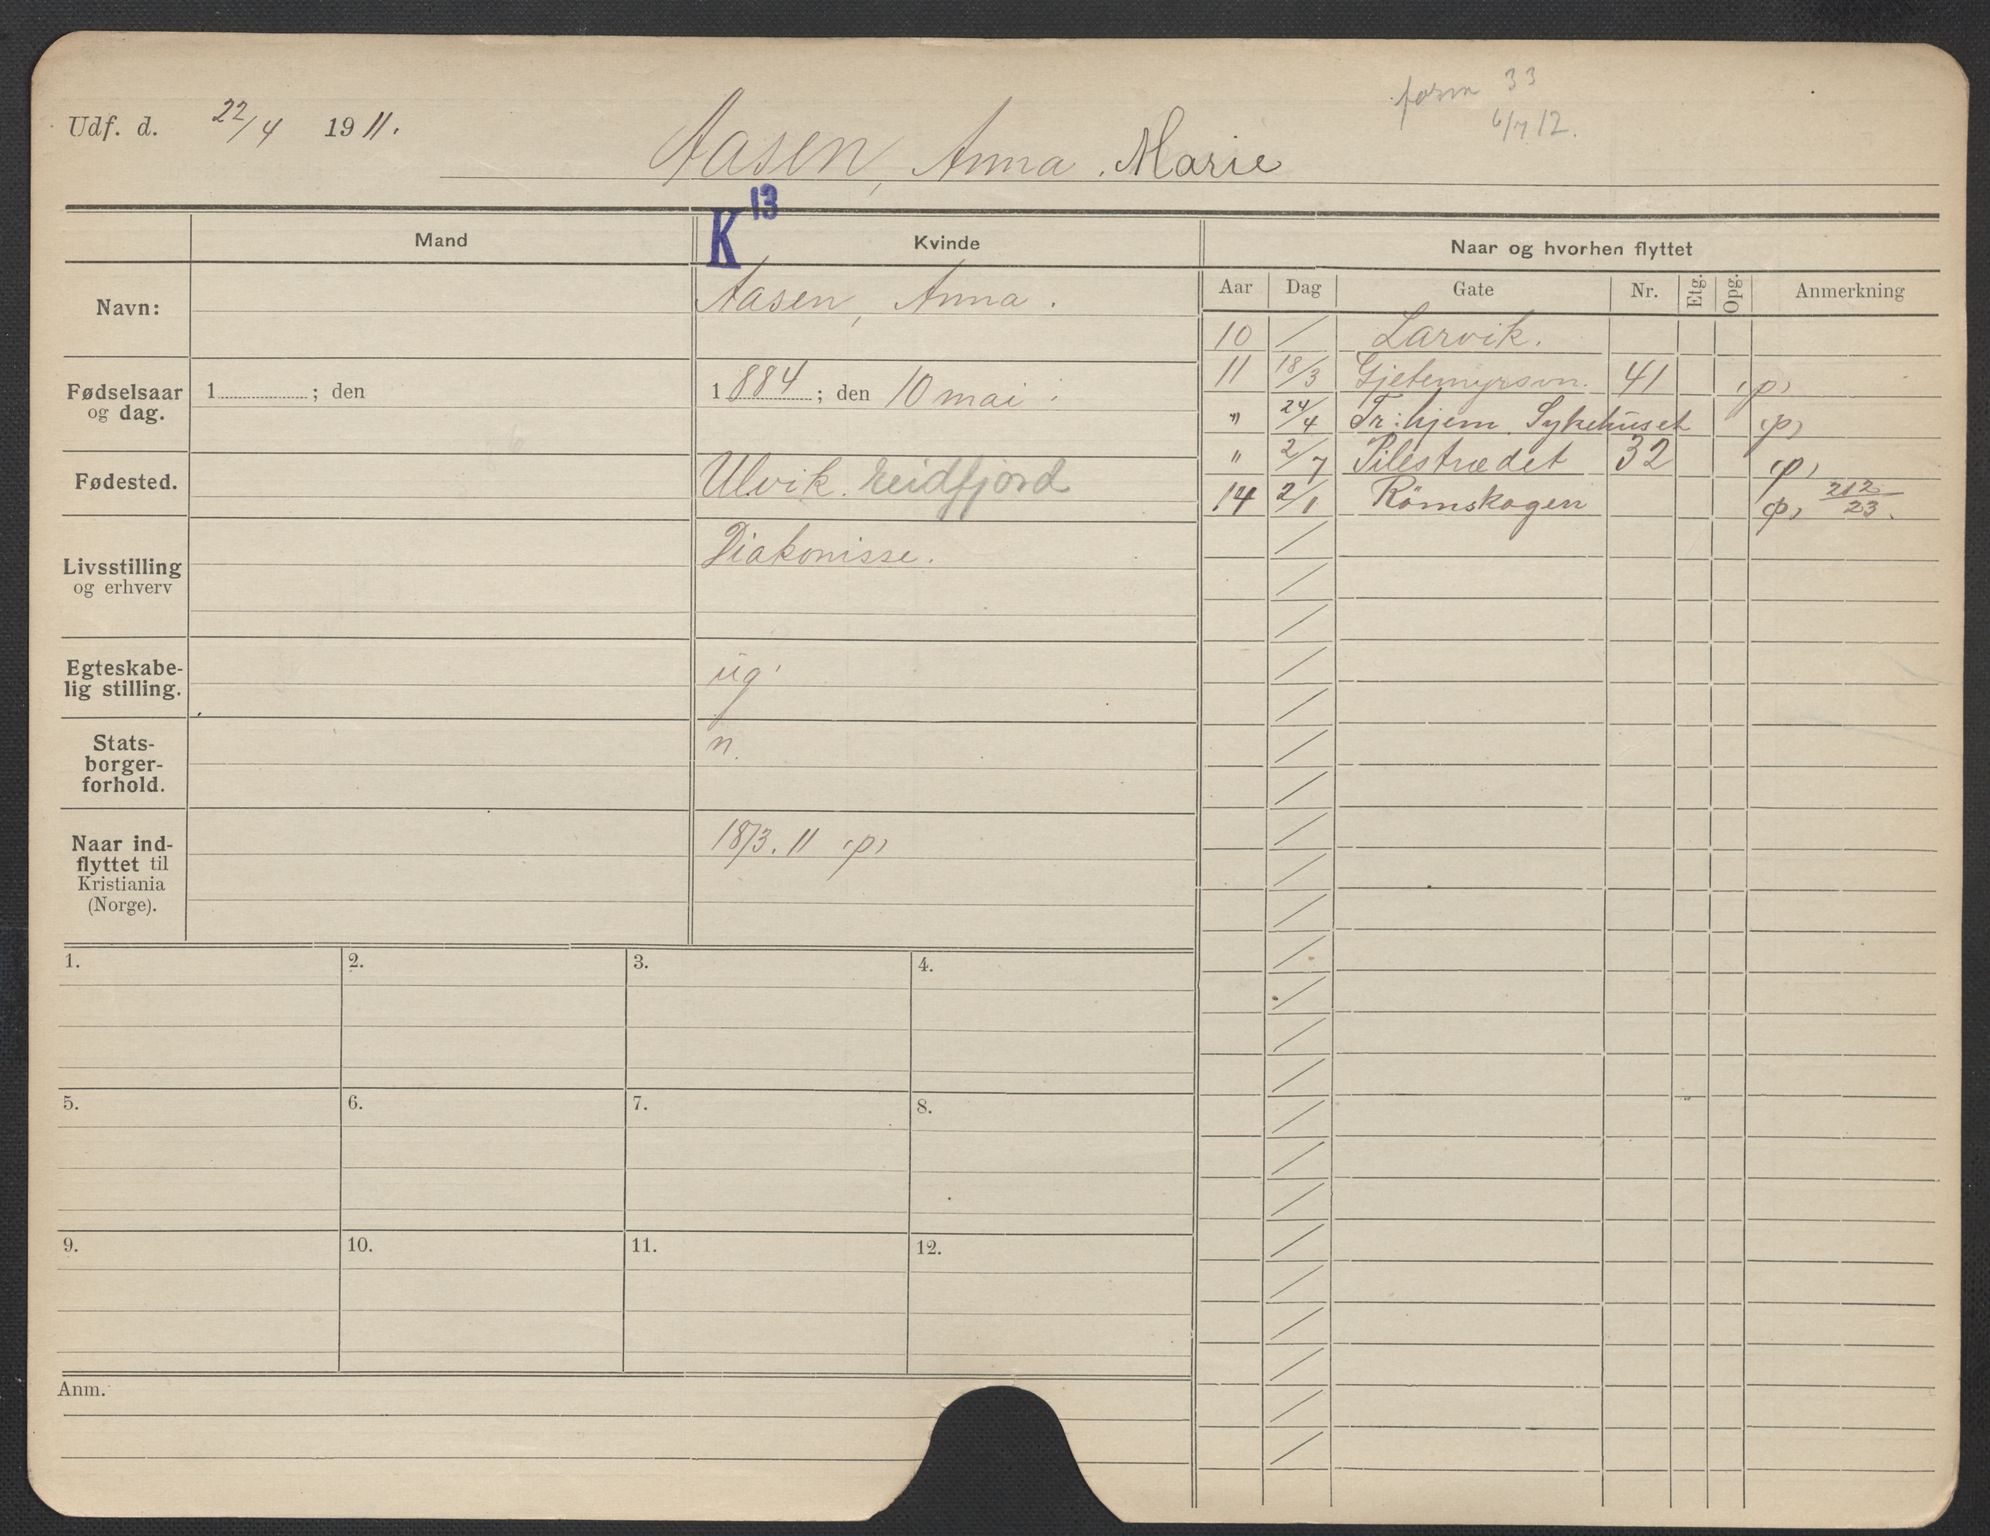 Udf. d. 22/4 1911.
form 33
6/7 12.
Aasen, Anna. Marie
K 13
Mand
Kvinde
Naar og hvorhen flyttet
Aar Dag Gate Nr. Etg. Opg. Anmerkning
Navn:
Aasen, Anna.
Fødselsaar
og dag.
1 ; den
1 884 ; den 10 mai
Fødested.
Ulvik. Eeidfjord
Livsstilling
og erhverv
Diakonisse.
Egteskabe-
lig stilling.
ug.
Stats-
borger-
forhold.
n.
Naar ind-
flyttet til
Kristiania
(Norge).
18/3. 11 (p)
10 / Larvik.
11 18/3 Gjetemyrsvn. 41 (p)
" 24/4 Tr: hjem. Sykehuset (p)
" 2/7 Pilestrædet 32 (p)
14 2/1 Römskogen (p) 212/23.
1. 2. 3. 4.
5. 6. 7. 8.
9. 10. 11. 12.
Anm.